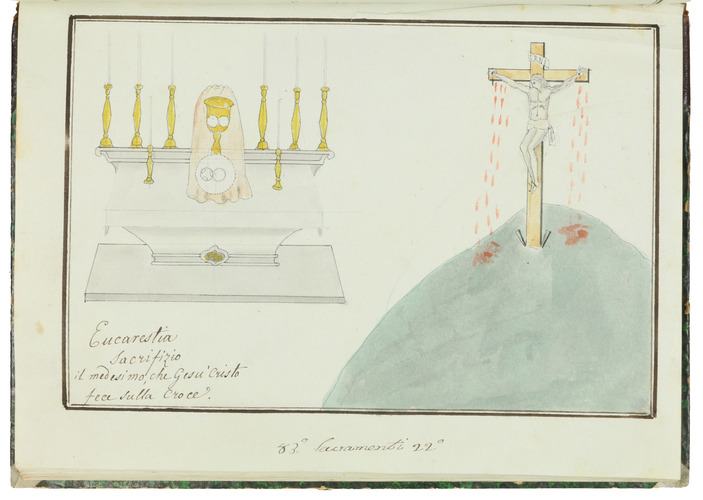 INRI
Eucarestia
Sacrifizio
il medesimo, che Gesù Cristo
fece sulla Croce.
83.º Sacramenti 22º